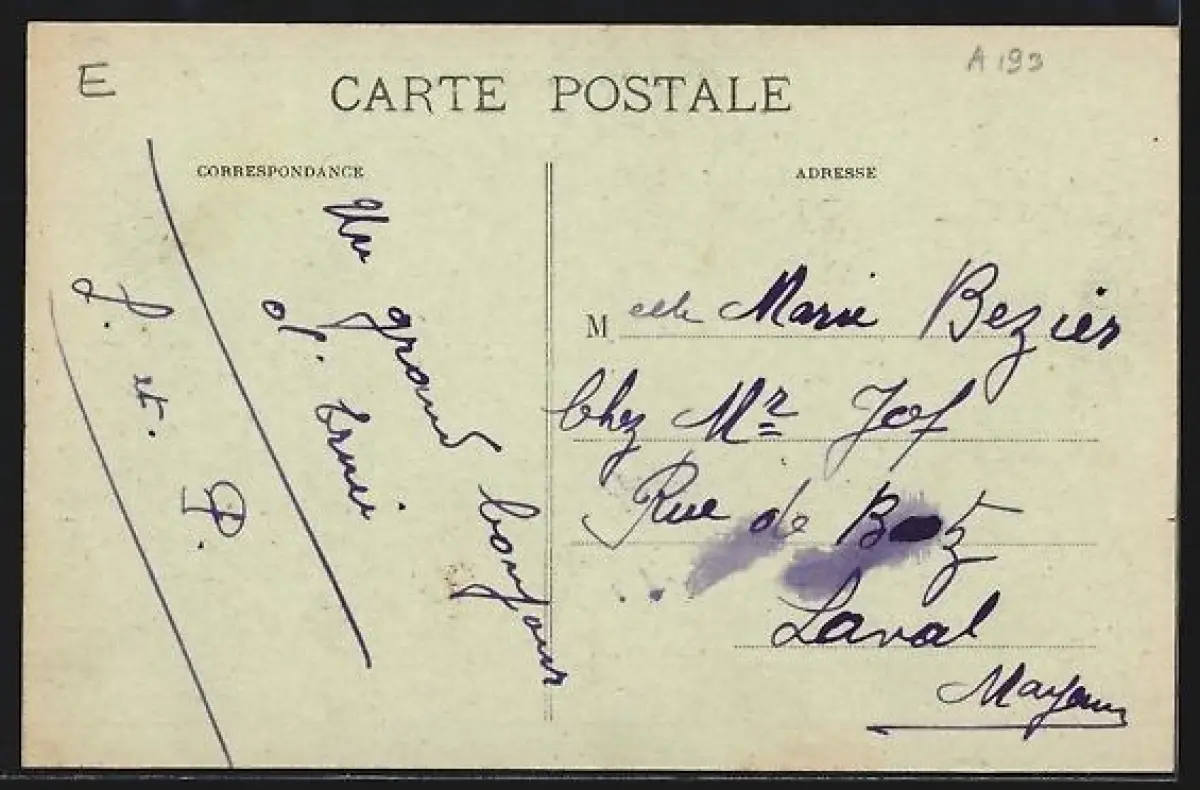 E
A 193
CARTE POSTALE
CORRESPONDANCE
Un grand bonjour
d'. Ernée
J. et. P.
ADRESSE
M elle Marie Bezier
Chez Mr
Rue de
Laval
Mayenne